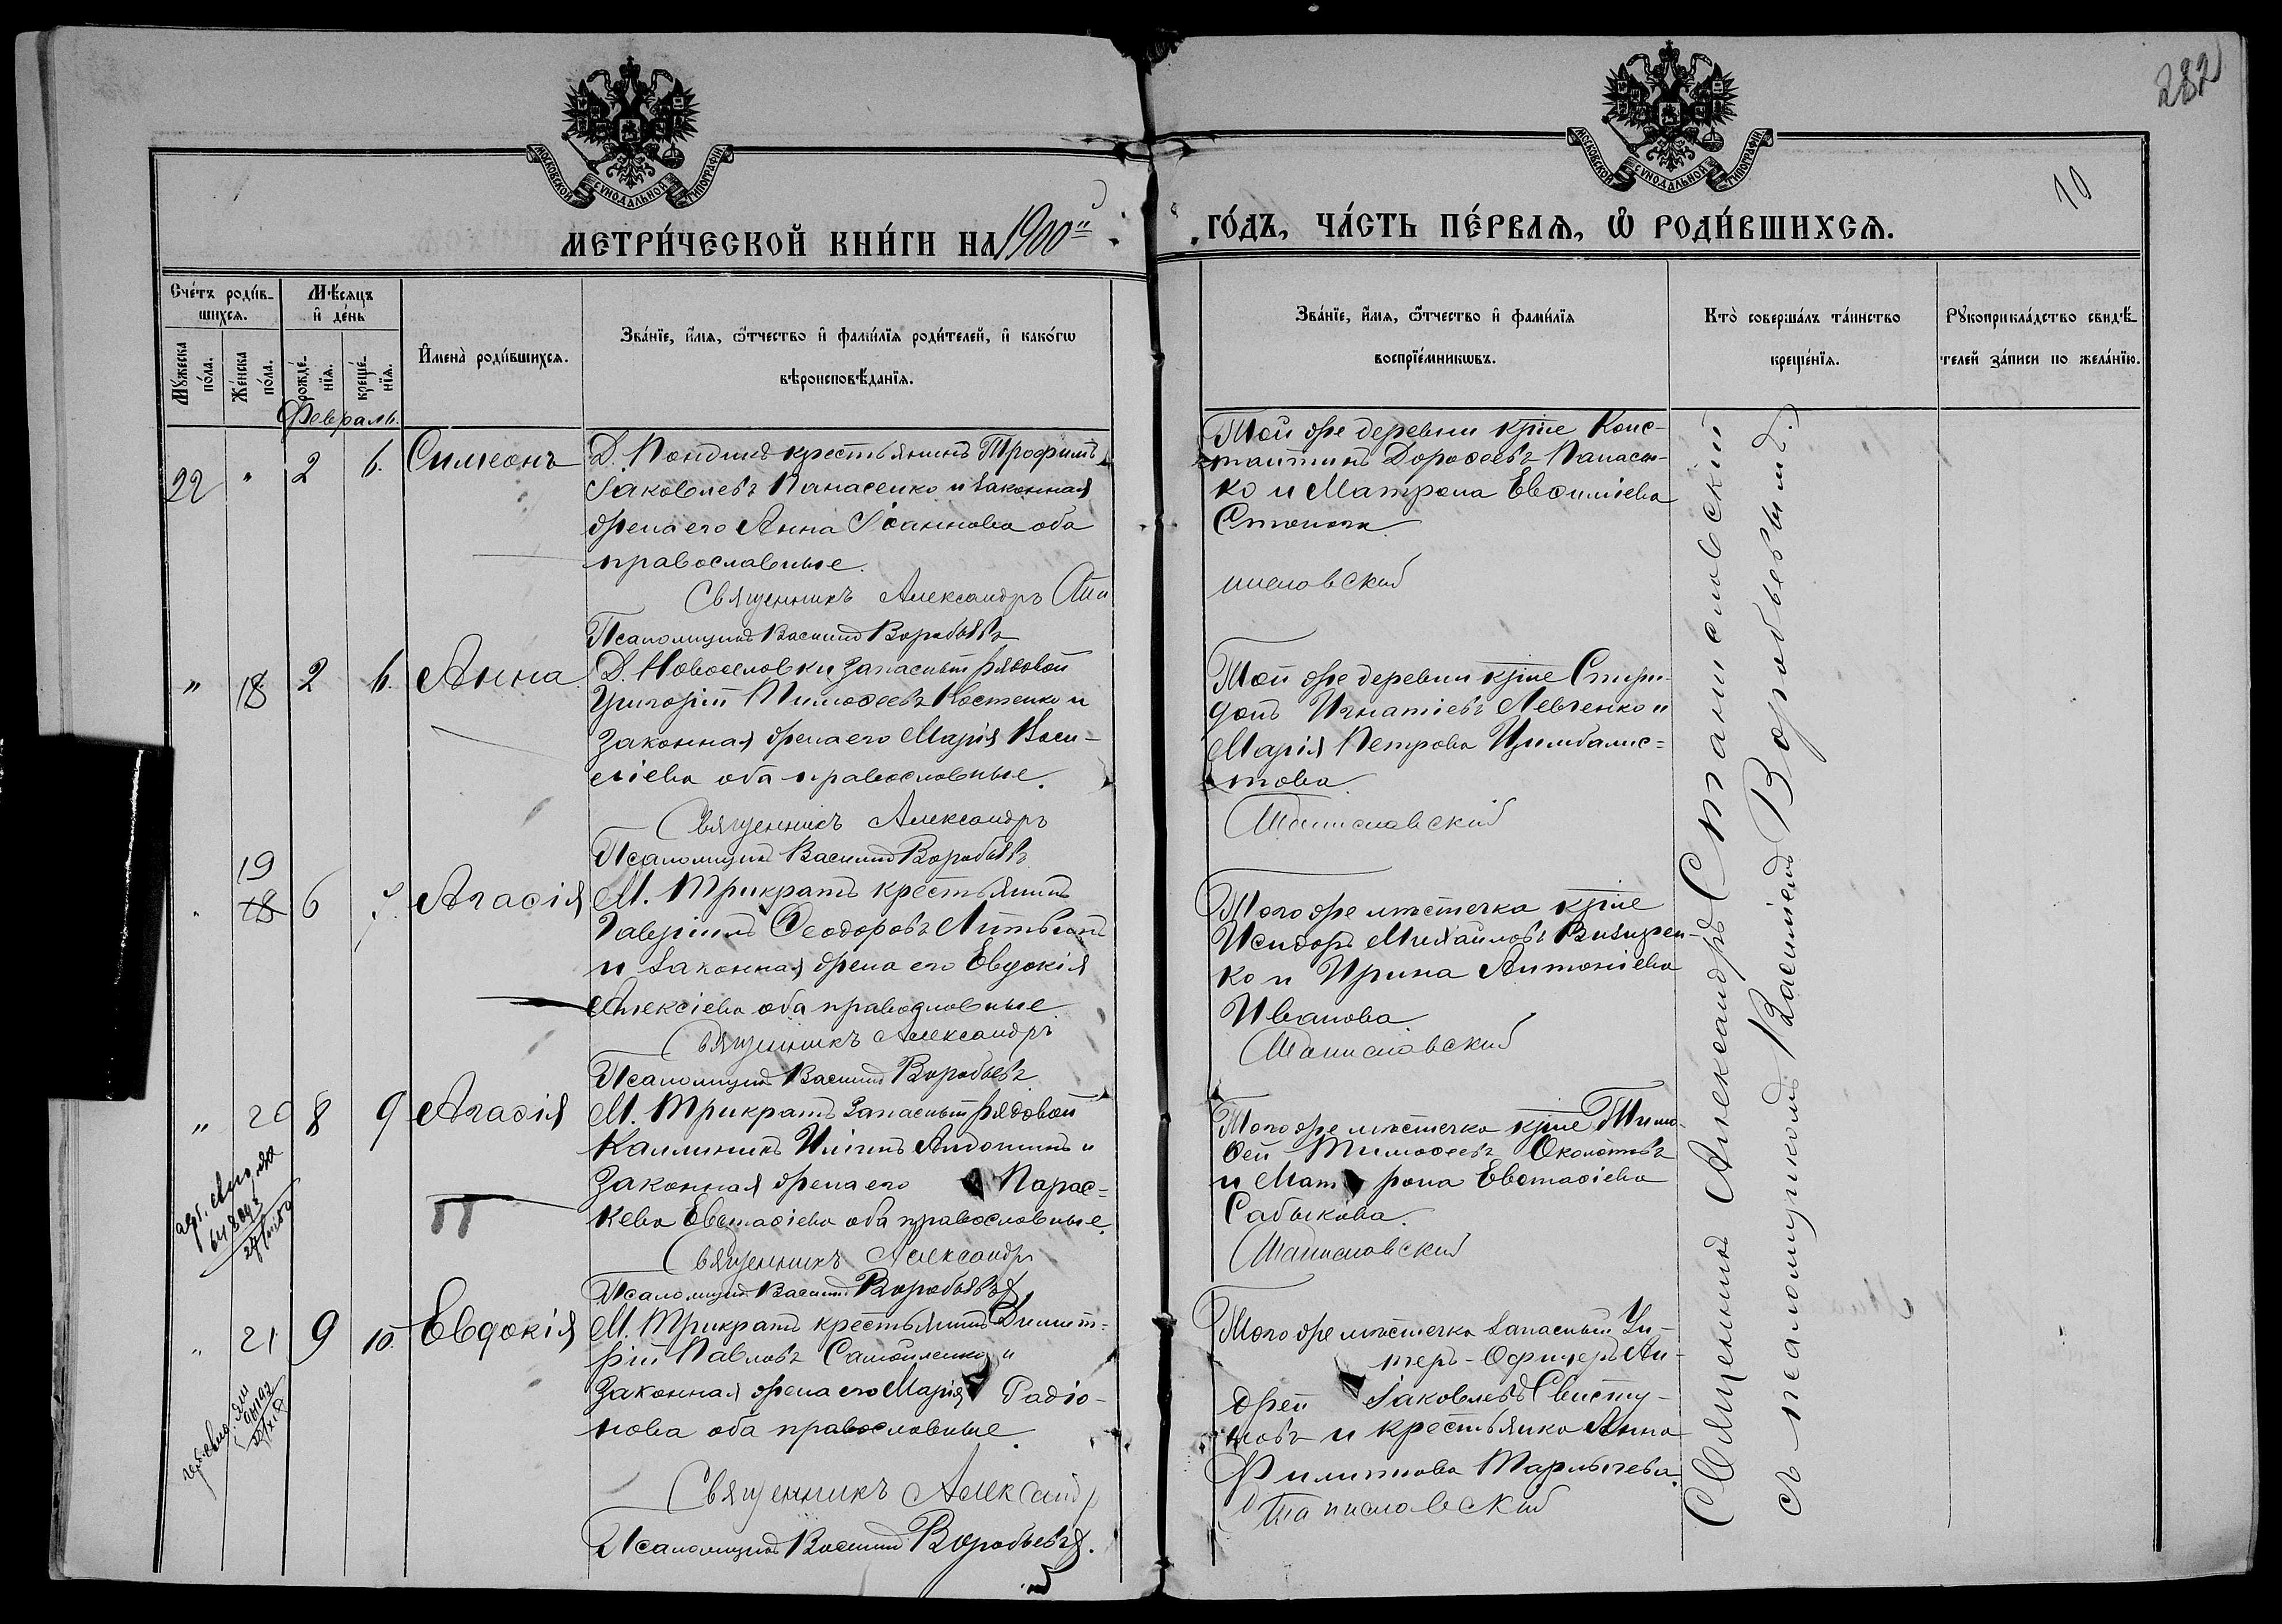 282
10
МОСКОВСКОЙ СѴНОДАЛЬНОЙ ТИПОГРАФІИ
МОСКОВСКОЙ СѴНОДАЛЬНОЙ ТИПОГРАФІИ
МЕТРИ́ЧЕСКОЙ КНИ́ГИ НА 1900й
ГО́ДЪ, ЧА́СТЬ ПЕ́РВАѦ, Ѡ҆ РОДИ́ВШИХСѦ.
Сче́тъ роди́в-
шихсѧ.
Мꙋ́жеска по́ла.
Же́нска по́ла.
Мѣ́сѧцъ
и҆ де́нь
рожде́-нїѧ.
креще́-нїѧ.
И҆мена̀ роди́вшихсѧ.
Зва́нїе, и҆́мѧ, ѻ҆́тчество и҆ фами́лїѧ роди́телей, и҆ како́гѡ
вѣроисповѣ́данїѧ.
Зва́нїе, и҆́мѧ, ѻ҆́тчество и҆ фами́лїѧ
воспрїе́мникѡвъ.
Кто̀ соверша́лъ та́инство
креще́нїѧ.
Рꙋкоприкла́дство свидѣ́-
телей за́писи по жела́нїю.
Февраль.
22 " 2 6. Симеонъ
Д. крестьянинъ Трофимъ
Іаковлевъ Панасенко и законная
жена его Анна Іоаннова оба
православные.
Священникъ Александръ Ста
Псаломщикъ Василій Воробьевъ
Той же деревни кр͞не Конс-
тантинъ Дороѳеевъ Панасен-
ко и Матрона Евѳиміева
ниславскій
" 18 2 6. Анна
Д. Новоселовки запасный рядовой
Григорій Тимоѳеевъ Костенко и
законная жена его Марія Васи-
ліева оба православные.
Священникъ Александръ
Псаломщикъ Василій Воробьевъ
Той же деревни кр͞не Спири-
донъ Игнатіевъ Левченко и
Марія Петрова Цимбалис-
това.
Станиславский
19
" 18 6 7. Агаѳія
М. Трикратъ крестьянинъ
Гавріилъ Ѳеодоровъ
и законная жена его Евдокія
Алексіева оба православные.
Священникъ Александръ
Псаломщикъ Василій Воробьевъ
Того же мѣстечка кр͞не
Исидоръ Михаиловъ
ко и Ирина Антоніева
Иванова.
Станиславскій
" 20 8 9 Агаѳія
М. Трикратъ запасный рядовой
Каллиникъ Иліинъ и
законная жена его Парас-
кева Евстаѳіева оба православные.
Священникъ Александръ
Псаломщикъ Василій Воробьевъ
Того же мѣстечка кр͞не Тимо-
ѳей Тимоѳеевъ
и Матрона Евстаѳіева
Сабыкова.
Станиславскій
" 21 9 10. Евдокія
М. Трикратъ крестьянинъ Димит-
рій Павловъ Самойленко и
законная жена его Марія Радіо-
нова оба православные.
Священникъ Александр
Псаломщикъ Василій Воробьевъ.
Того же мѣстечка запасный Ун-
теръ-Офицеръ Ан-
дрей Іаковлевъ Свисту-
новъ и крестьянка Анна
Филиппова
Станиславскій
Священникъ Александръ Станиславскій
съ псаломщикомъ Василіемъ Воробьевымъ.